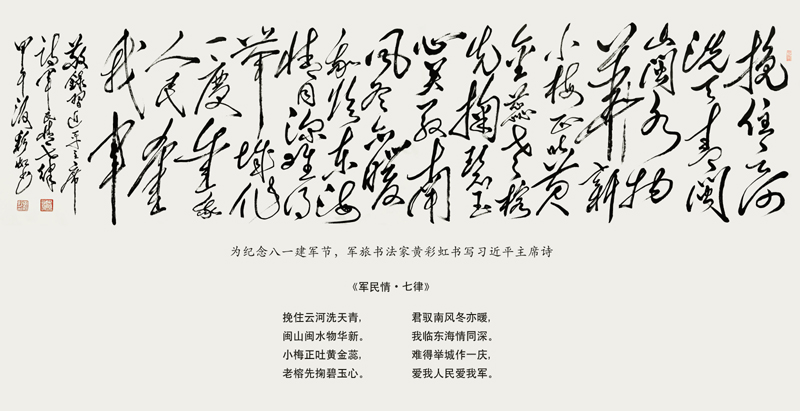 挽住云河
洗天青闽
山闽水物
华新
小梅正吐黄
金蕊老榕
先掬碧玉
心君驭南
风冬亦暖
我临东海
情同深难得
举城作
一庆爱我
人民爱
我军
敬录习近平主席
诗军民情七律
甲午 彩虹
为纪念八一建军节，军旅书法家黄彩虹书写习近平主席诗
《军民情·七律》
挽住云河洗天青,
闽山闽水物华新。
小梅正吐黄金蕊,
老榕先掬碧玉心。
君驭南风冬亦暖,
我临东海情同深。
难得举城作一庆,
爱我人民爱我军。